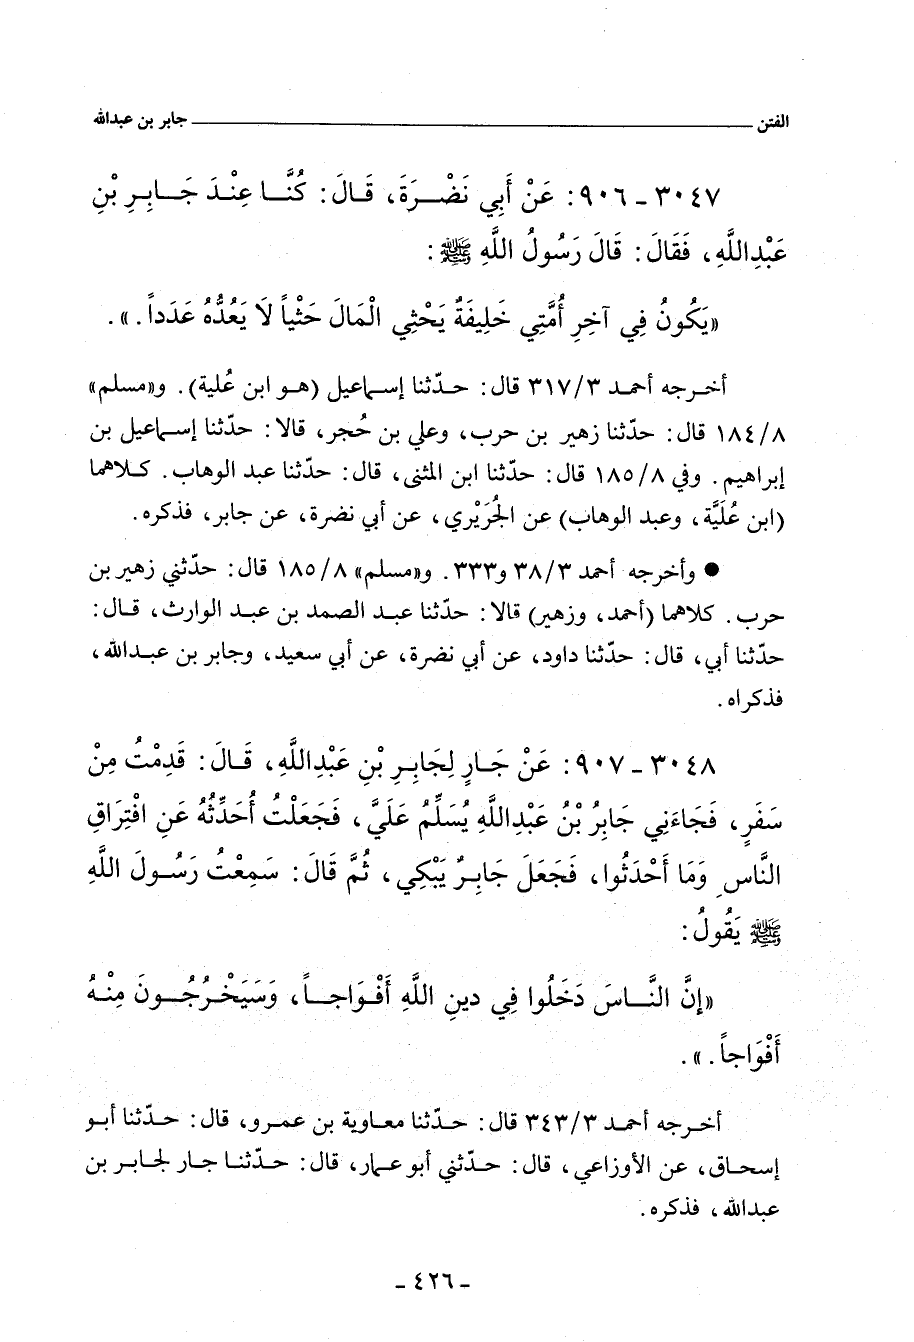 الفتن ــــــــــــــــــــ جابر بن عبدالله
٣٠٤٧ ـ ٩٠٦: عَنْ أَبِي نَضْرَةَ، قَالَ: كُنَّا عِنْدَ جَابِرِ بْنِ
عَبْدِاللَّهِ، فَقَالَ: قَالَ رَسُولُ اللَّهِ ﷺ:
«يَكُونُ فِي آخِرِ أُمَّتِي خَلِيفَةٌ يَحْثِي الْمَالَ حَثْياً لَا يَعُدُّهُ عَدَداً.».
أخرجه أحمد ٣١٧/٣ قال: حدّثنا إسماعيل (هو ابن عُلية). و«مسلم»
١٨٤/٨ قال: حدّثنا زهير بن حرب، وعلي بن حُجر، قالا: حدّثنا إسماعيل بن
إبراهيم. وفي ١٨٥/٨ قال: حدّثنا ابن المثنى، قال: حدّثنا عبد الوهاب. كلاهما
(ابن عُلَيَّة، وعبد الوهاب) عن الجُرَيْري، عن أبي نضرة، عن جابر، فذكره.
● وأخرجه أحمد ٣٨/٣ و٣٣٣. و«مسلم» ١٨٥/٨ قال: حدّثني زهير بن
حرب. كلاهما (أحمد، وزهير) قالا: حدّثنا عبد الصمد بن عبد الوارث، قال:
حدّثنا أبي، قال: حدّثنا داود، عن أبي نضرة، عن أبي سعيد، وجابر بن عبدالله،
فذكراه.
٣٠٤٨ ـ ٩٠٧: عَنْ جَارٍ لِجَابِرِ بْنِ عَبْدِاللَّهِ، قَالَ: قَدِمْتُ مِنْ
سَفَرٍ، فَجَاءَنِي جَابِرُ بْنُ عَبْدِاللَّهِ يُسَلِّمُ عَلَيَّ، فَجَعَلْتُ أُحَدِّثُهُ عَنِ افْتِرَاقِ
النَّاسِ وَمَا أَحْدَثُوا، فَجَعَلَ جَابِرٌ يَبْكِي، ثُمَّ قَالَ: سَمِعْتُ رَسُولَ اللَّهِ
ﷺ يَقُولُ:
«إِنَّ النَّاسَ دَخَلُوا فِي دِينِ اللَّهِ أَفْوَاجاً، وَسَيَخْرُجُونَ مِنْهُ
أَفْوَاجاً.».
أخرجه أحمد ٣٤٣/٣ قال: حدّثنا معاوية بن عمرو، قال: حدّثنا أبو
إسحاق، عن الأوزاعي، قال: حدّثني أبو عمار، قال: حدّثنا جار لجابر بن
عبدالله، فذكره.
ـ ٤٢٦ ـ